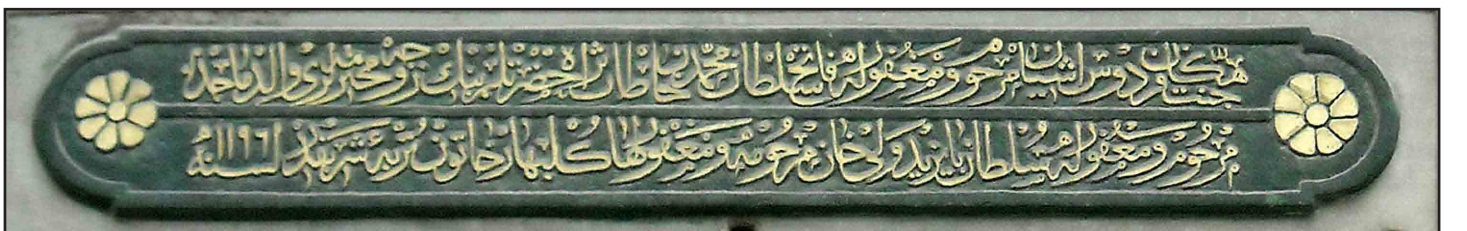 جنتمكان و فردوس اشيان مرحوم و مغفور له فاتح سلطان محمد خان طاب ثراه حضرتلرينك زوجه محترمه لرى والده ماجده
مرحوم و مغفور له سلطان بايزيد ولى خان مرحومه و مغفور لها كلبهار خاتون تربهٔ شريفه سنة ١١٩٦